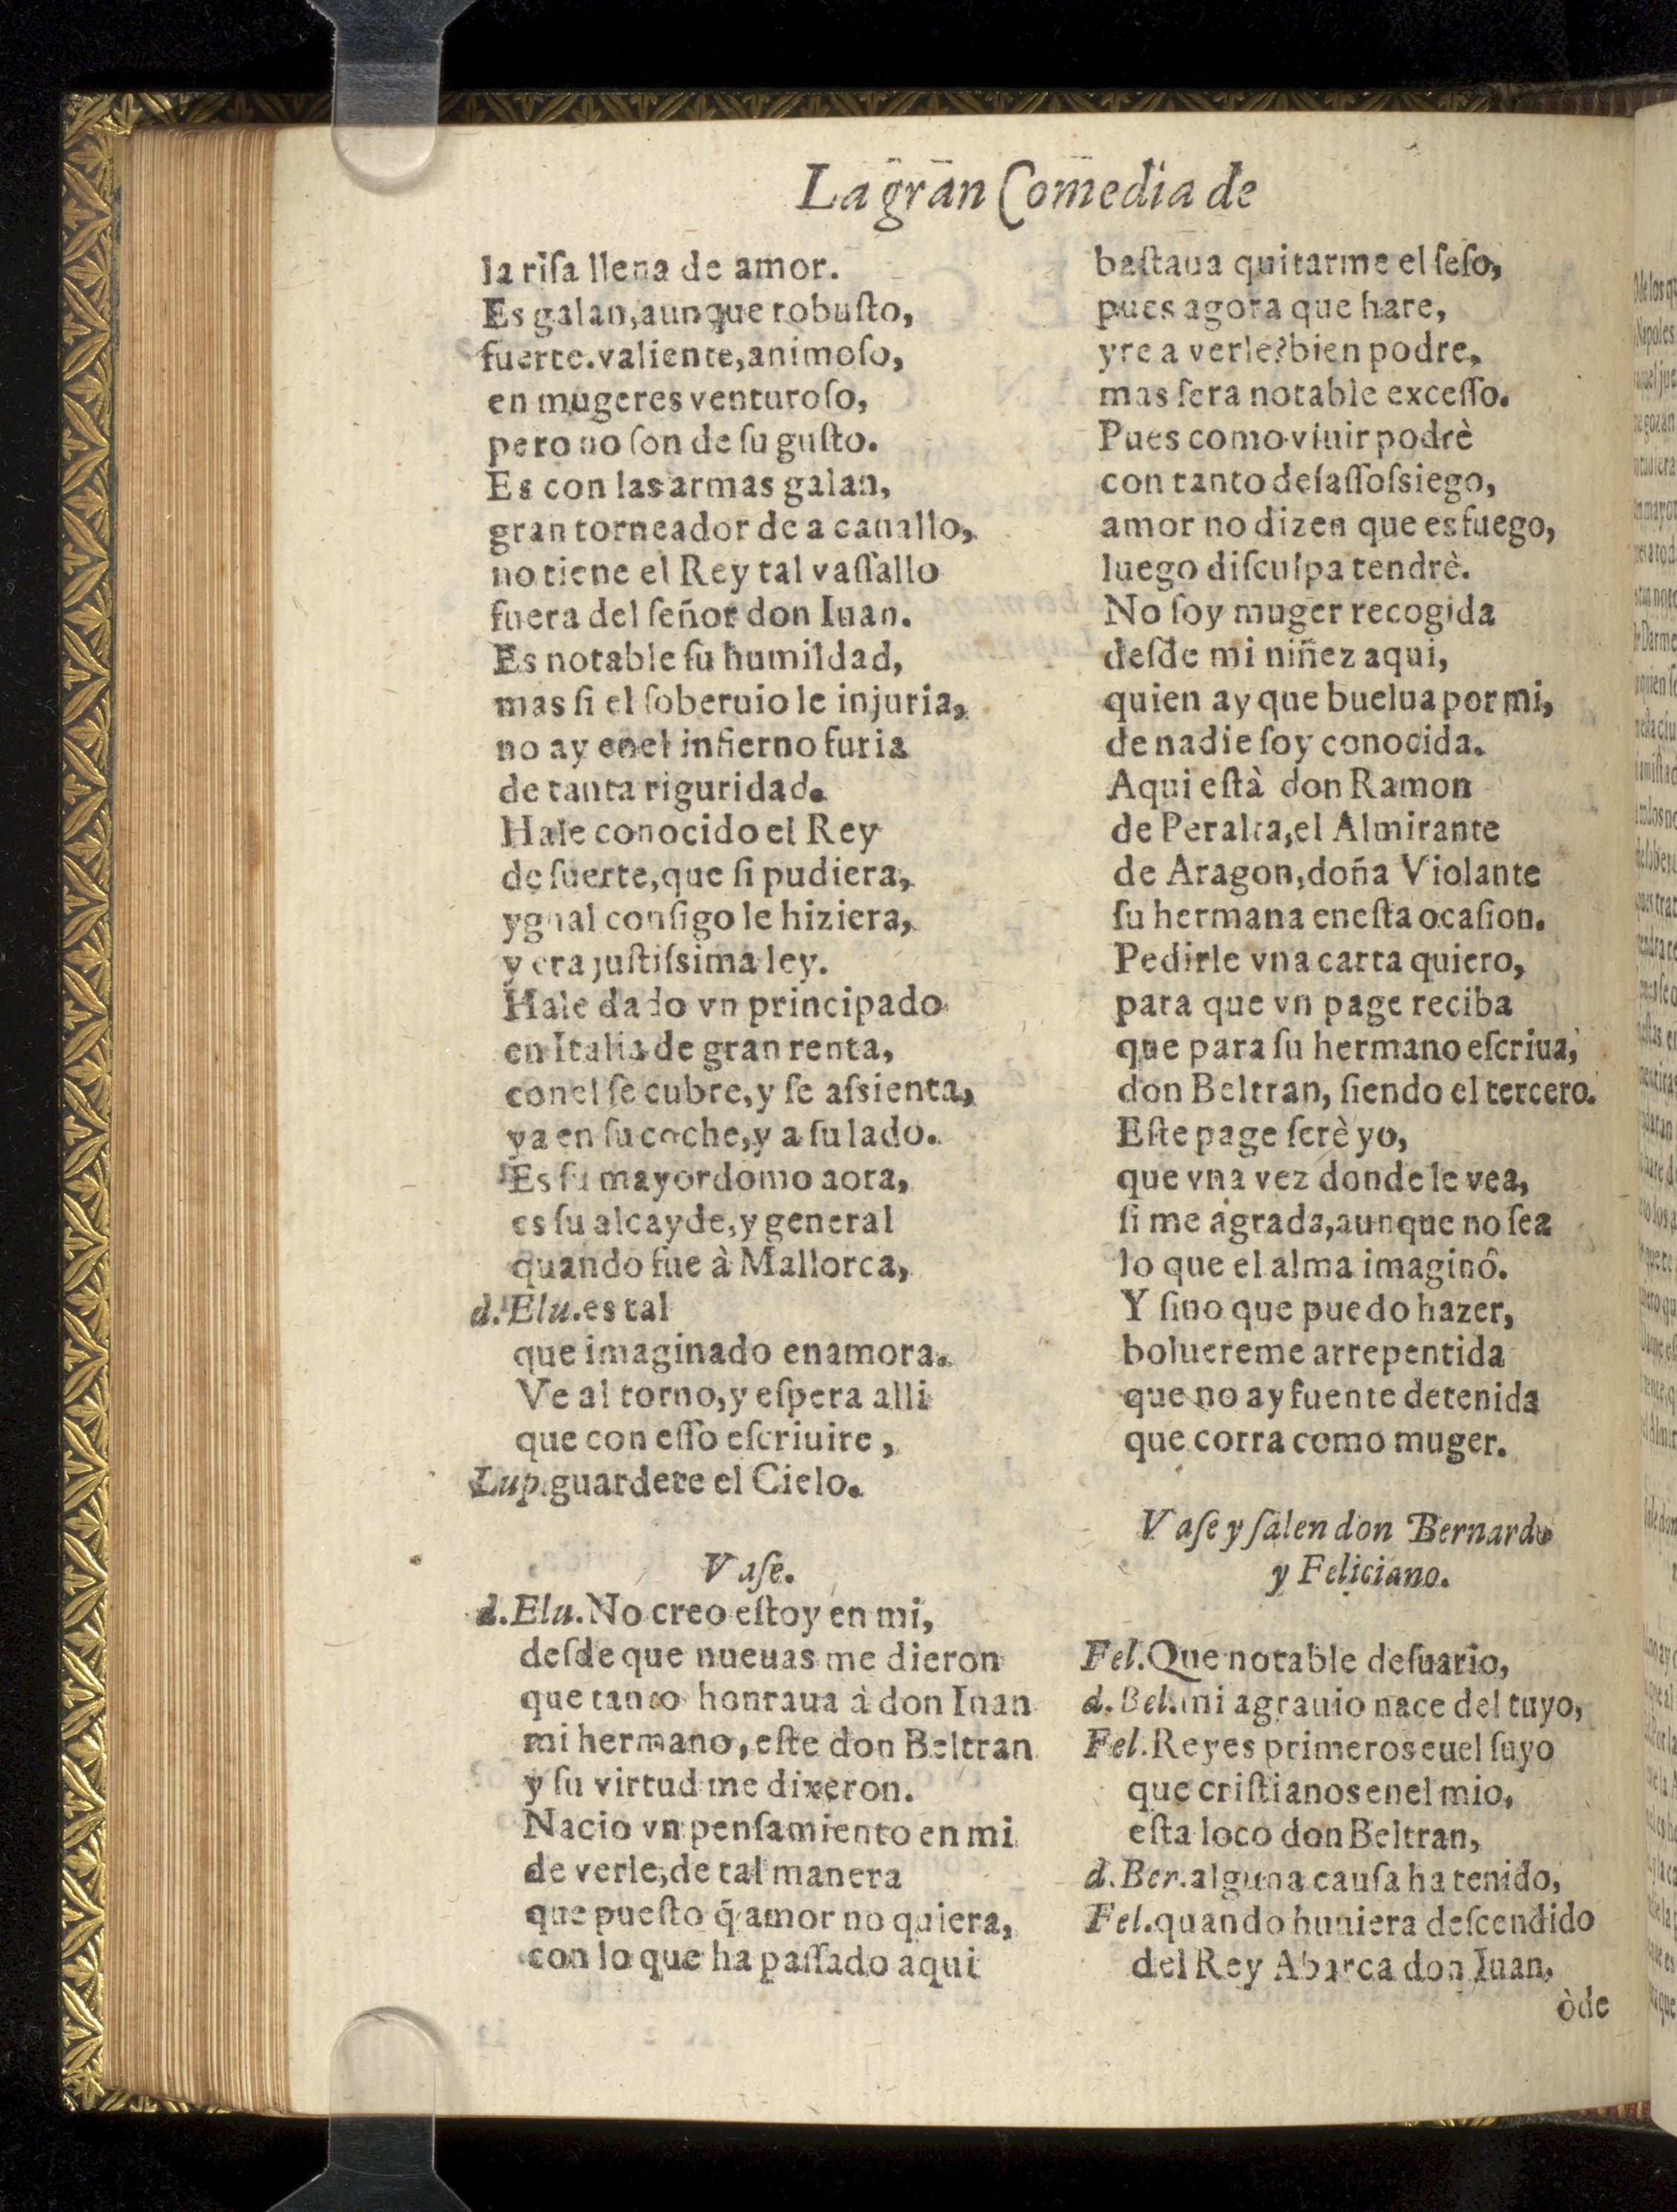 La gran Comedia de
la risa llena de amor.
Es galan,aunque robusto,
fuerte.valiente,animoso,
en mugeres venturoso,
pero no son de su gusto.
Es con las armas galan,
gran torneador de a cauallo,
no tiene el Rey tal vassallo
fuera del señor don Iuan.
Es notable su humildad,
mas si el soberuio le injuria,
no ay enel infierno furia
de tanta riguridad.
Hale conocido el Rey
de suerte,que si pudiera,
ygual consigo le hiziera,
y era justissima ley.
Hale dado vn principado
en Italia de gran renta,
conel se cubre,y se assienta,
va en su coche,y a su lado.
Es su mayordomo aora,
es su alcayde,y general
quando fue à Mallorca,
d. Elu.es tal
que imaginado enamora.
Ve al torno,y espera alli
que con esso escriuire ,
Lup.guardete el Cielo.
Vase.
d.Elu.No creo estoy en mi,
desde que nueuas me dieron
que tanto honraua à don Iuan
mi hermano, este don Beltran
y su virtud me dixeron.
Nacio vn pensamiento en mi
de verle,de tal manera
que puesto q̃ amor no quiera,
con lo que ha passado aqui
bastaua quitarme el seso,
pues agora que hare,
yre a verle?bien podre,
mas sera notable excesso.
Pues como viuir podrè
con tanto desassossiego,
amor no dizen que es fuego,
luego disculpa tendrè.
No soy muger recogida
desde mi niñez aqui,
quien ay que buelua por mi,
de nadie soy conocida.
Aqui està don Ramon
de Peralta,el Almirante
de Aragon,doña Violante
su hermana enesta ocasion.
Pedirle vna carta quiero,
para que vn page reciba
que para su hermano escriua,
don Beltran, siendo el tercero.
Este page serè yo,
que vna vez donde le vea,
si me agrada,aunque no sea
lo que el alma imaginô.
Y sino que puedo hazer,
boluereme arrepentida
que no ay fuente detenida
que corra como muger.
Vase y salen don Bernardo
y Feliciano.
Fel.Que notable desuario,
d. Bel.mi agrauio nace del tuyo,
Fel.Reyes primeros euel suyo
que cristianos enel mio,
esta loco don Beltran,
d.Ber.alguna causa ha tenido,
Fel.quando huuiera descendido
del Rey Abarca don Iuan,
òde